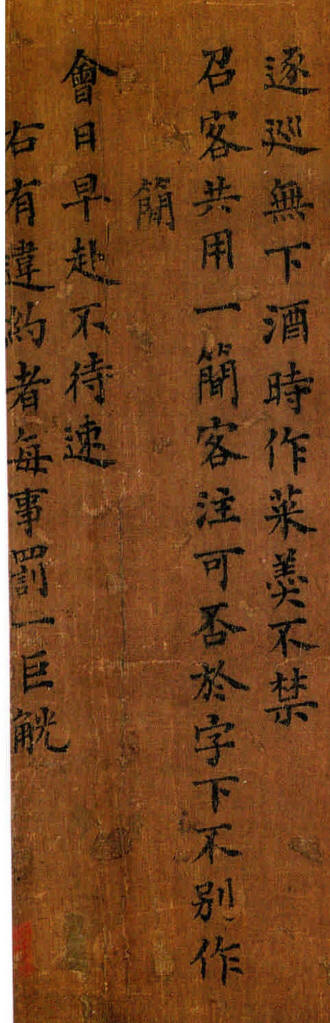 逐巡無下酒時作菜羹不禁
召客共用一簡客注可否於字下不別作
簡
會日早赴不待速
右有違約者每事罰一巨觥